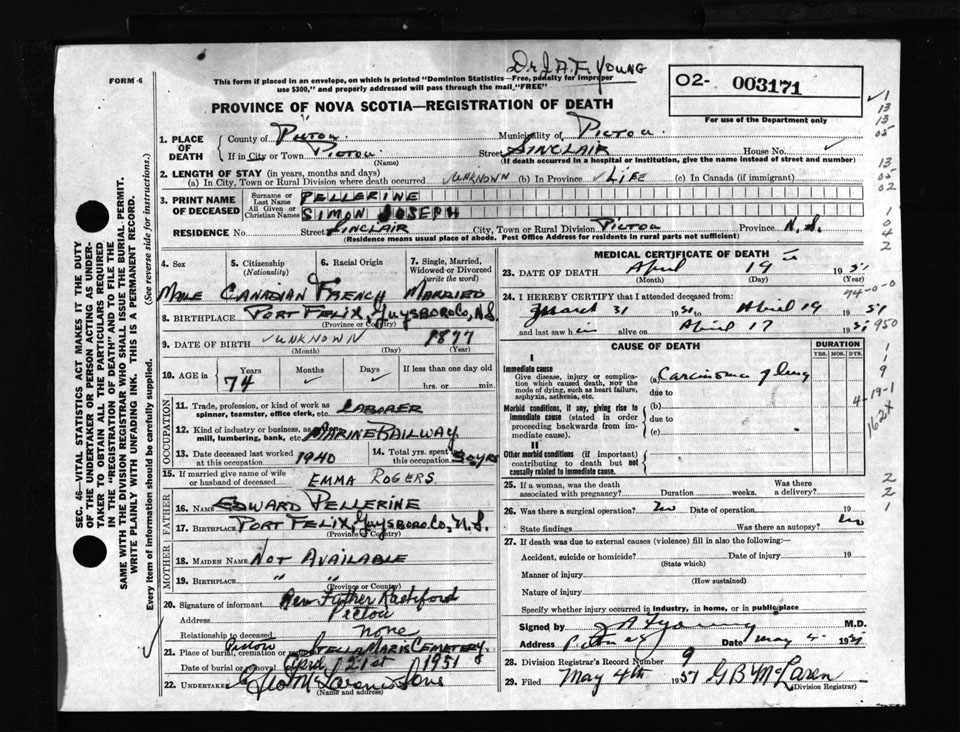 Dr J. A. F. Young
FORM 6
This form if placed in an envelope, on which is printed "Dominion Statistics—Free, penalty for improper
use $300," and properly addressed will pass through the mail "FREE"
02- 003171
For use of the Department only
PROVINCE OF NOVA SCOTIA—REGISTRATION OF DEATH
1. PLACE OF DEATH
County of Pictou Municipality of Pictou
If in City or Town Pictou Street SINCLAIR House No.
(Name) (If death occurred in a hospital or institution, give the name instead of street and number)
2. LENGTH OF STAY (in years, months and days)
(a) In City, Town or Rural Division where death occurred UNKNOWN (b) In Province LIFE (c) In Canada (if immigrant)
3. PRINT NAME OF DECEASED
Surname or Last Name PELLERINE
All Given or Christian Names SIMON JOSEPH
RESIDENCE No. Street SINCLAIR City, Town or Rural Division PICTOU Province N.S.
(Residence means usual place of abode. Post Office Address for residents in rural parts not sufficient)
4. Sex 5. Citizenship (Nationality) 6. Racial Origin 7. Single, Married, Widowed or Divorced (write the word)
MALE CANADIAN FRENCH MARRIED
8. BIRTHPLACE PORT FELIX, Guysboro Co, N.S.
(Province or Country)
9. DATE OF BIRTH UNKNOWN 1877
(Month) (Day) (Year)
10. AGE in Years Months Days If less than one day old
74 hrs. or min.
OCCUPATION
11. Trade, profession, or kind of work as spinner, teamster, office clerk, etc. LABORER
12. Kind of industry or business, as mill, lumbering, bank, etc. MARINE RAILWAY
13. Date deceased last worked at this occupation 1940 14. Total yrs. spent in this occupation 30 yrs
15. If married give name of wife or husband of deceased EMMA ROGERS
FATHER
16. Name EDWARD PELLERINE
17. Birthplace PORT FELIX, Guysboro Co, N.S.
MOTHER
18. MAIDEN NAME NOT AVAILABLE
19. BIRTHPLACE " "
(Province or Country)
20. Signature of informant Rev. Father
Address Pictou
Relationship to deceased None
21. Place of burial, cremation or Pictou STELLA MARIS CEMETERY.
Date of burial or removal April 21st 1951
22. UNDERTAKER Geo McLaren & Sons
(Name and address)
MEDICAL CERTIFICATE OF DEATH
23. DATE OF DEATH April 19 1951
(Month) (Day) (Year)
24. I HEREBY CERTIFY that I attended deceased from:
March 31 1951 to April 19 1951
and last saw him alive on April 17 1951
CAUSE OF DEATH DURATION
YRS. MOS. DYS.
I
Immediate cause
Give disease, injury or complication which caused death, NOT the mode of dying, such as heart failure, asphyxia, asthenia, etc.
(a) Carcinoma of lung
due to
Morbid conditions, if any, giving rise to immediate cause (stated in order proceeding backwards from immediate cause).
(b)
due to
(c)
II
Other morbid conditions (if important) contributing to death but not causally related to immediate cause.
25. If a woman, was the death associated with pregnancy? Duration weeks. Was there a delivery?
26. Was there a surgical operation? no Date of operation 19
State findings Was there an autopsy? no
27. If death was due to external causes (violence) fill in also the following:—
Accident, suicide or homicide? Date of injury 19
(State which)
Manner of injury
(How sustained)
Nature of injury
Specify whether injury occurred in industry, in home, or in public place
Signed by J A F Young M.D.
Address Pictou Date May 4 1951
28. Division Registrar's Record Number 9
29. Filed May 4th 1951 G B McLaren
(Division Registrar)
1
13
13
05
13
05
02
1
0
4
2
74-0-0
950
1
1
9
4-19-1
162x
2
2
1
SEC. 46—VITAL STATISTICS ACT MAKES IT THE DUTY
OF THE UNDERTAKER OR PERSON ACTING AS UNDER-
TAKER TO OBTAIN ALL THE PARTICULARS REQUIRED
IN THE "REGISTRATION OF DEATH" AND TO FILE THE
SAME WITH THE DIVISION REGISTRAR WHO SHALL ISSUE THE BURIAL PERMIT.
WRITE PLAINLY WITH UNFADING INK. THIS IS A PERMANENT RECORD.
Every item of information should be carefully supplied. (See reverse side for instructions.)